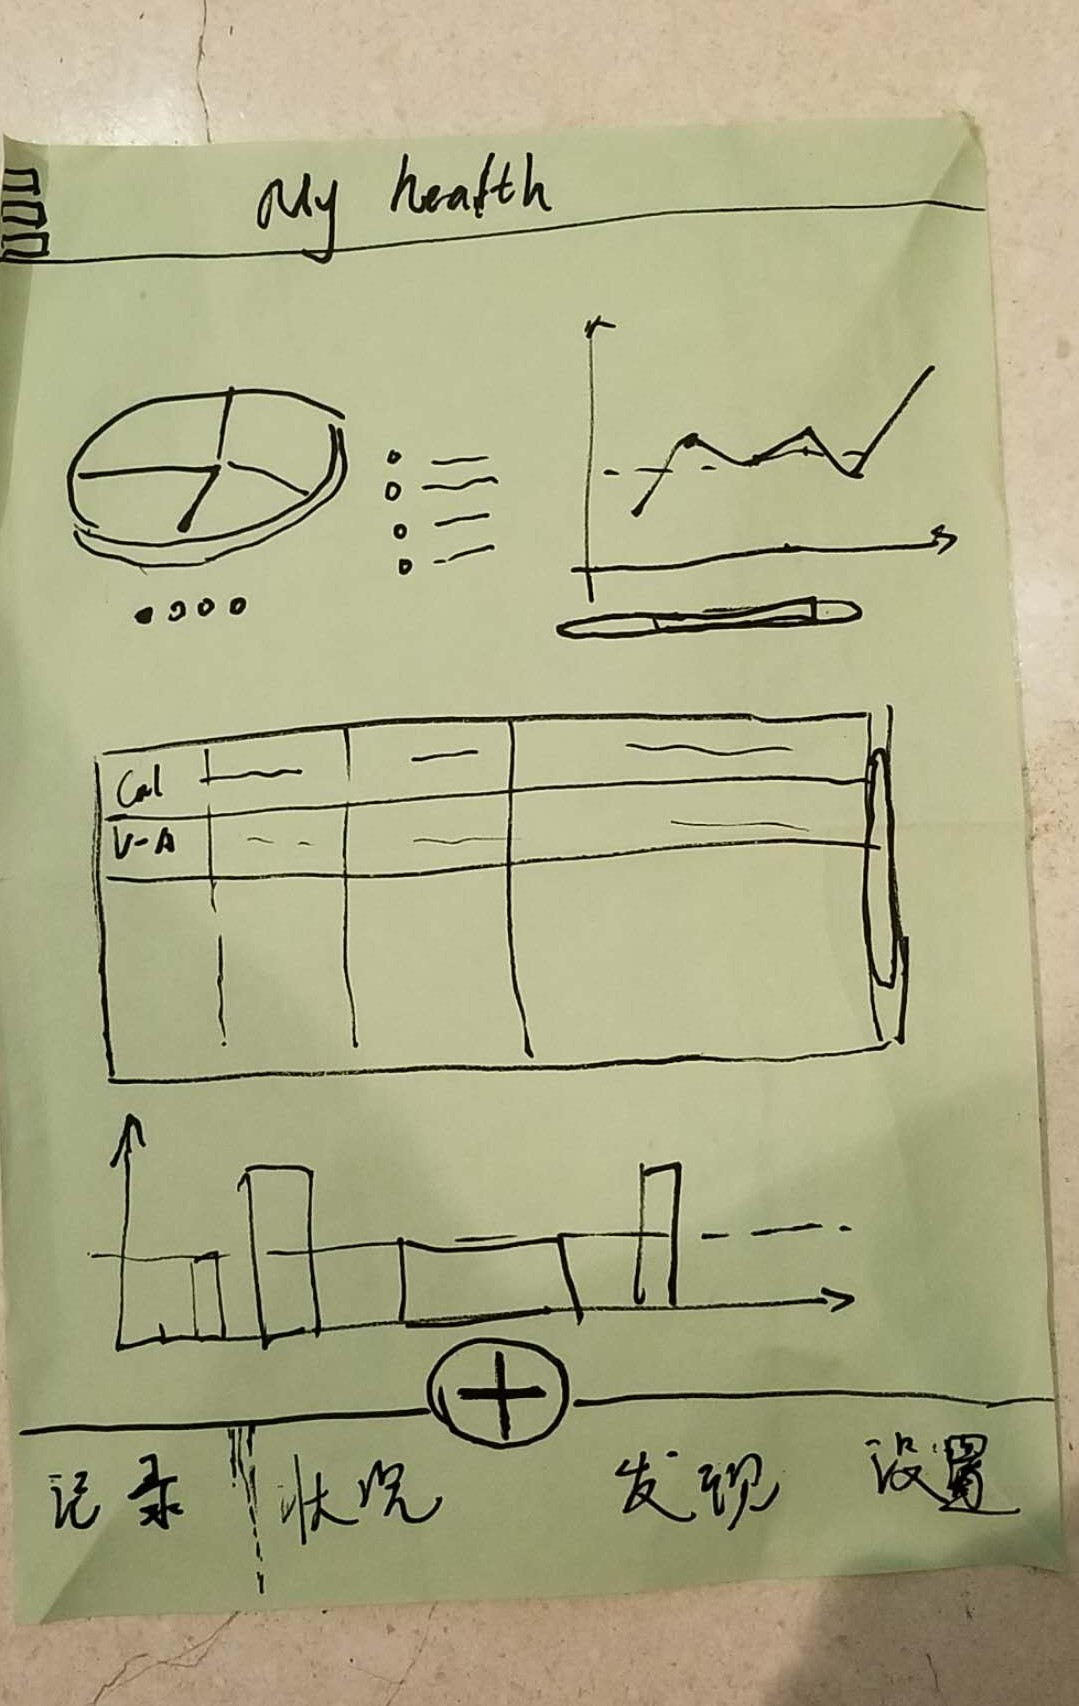 My health
Cal
V-A
记录 状况 发现 设置